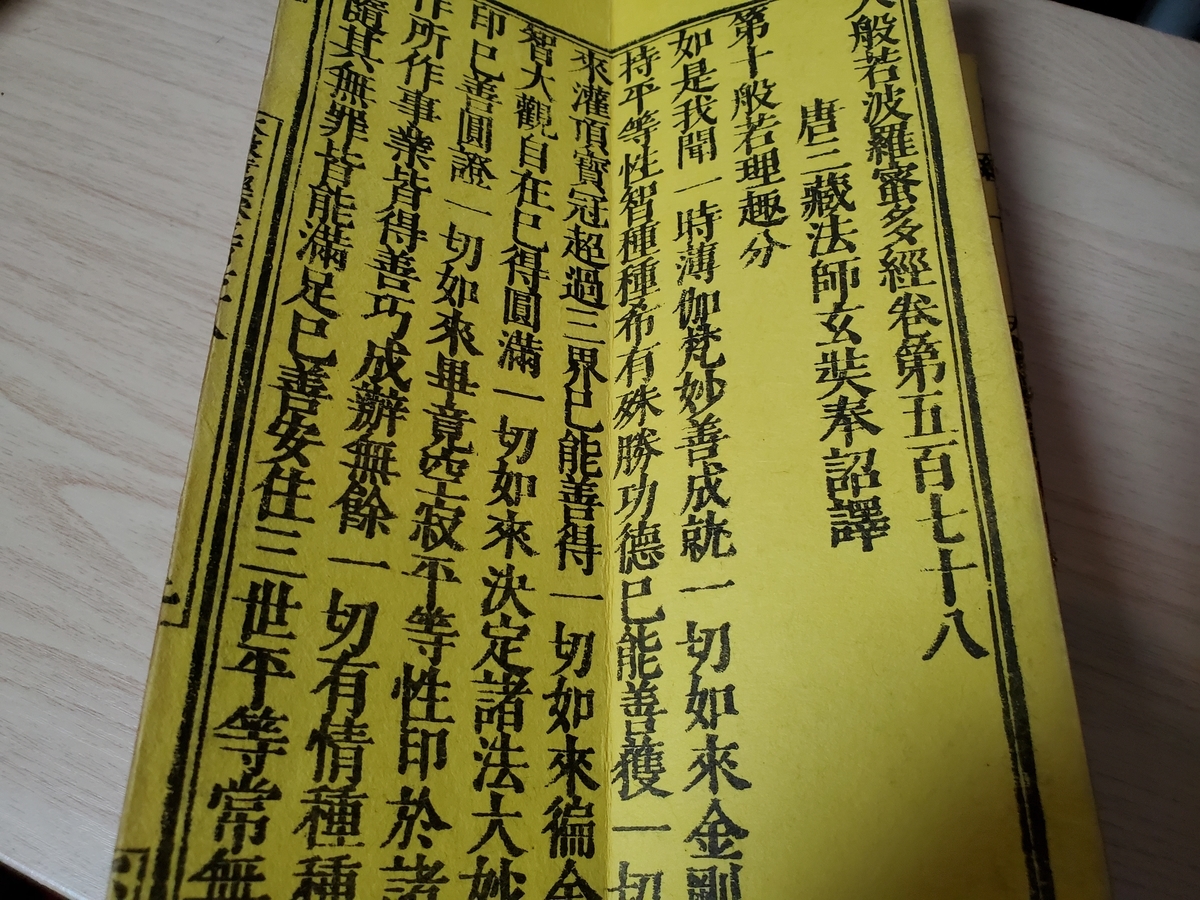 大般若波羅蜜多經卷第五百七十八
唐三藏法師玄奘奉詔譯
第十般若理趣分
如是我聞一時薄伽梵妙善成就一切如來金剛
持平等性智種種希有殊勝功德已能善獲一切
來灌頂寶冠超過三界已能善得一切如來徧金
智大觀自在已得圓滿一切如來決定諸法大妙
印已善圓證一切如來畢竟空寂平等性印於諸
作所作事業皆得善巧成辦無餘一切有情種種
隨其無罪皆能滿足已善安住三世平等常無